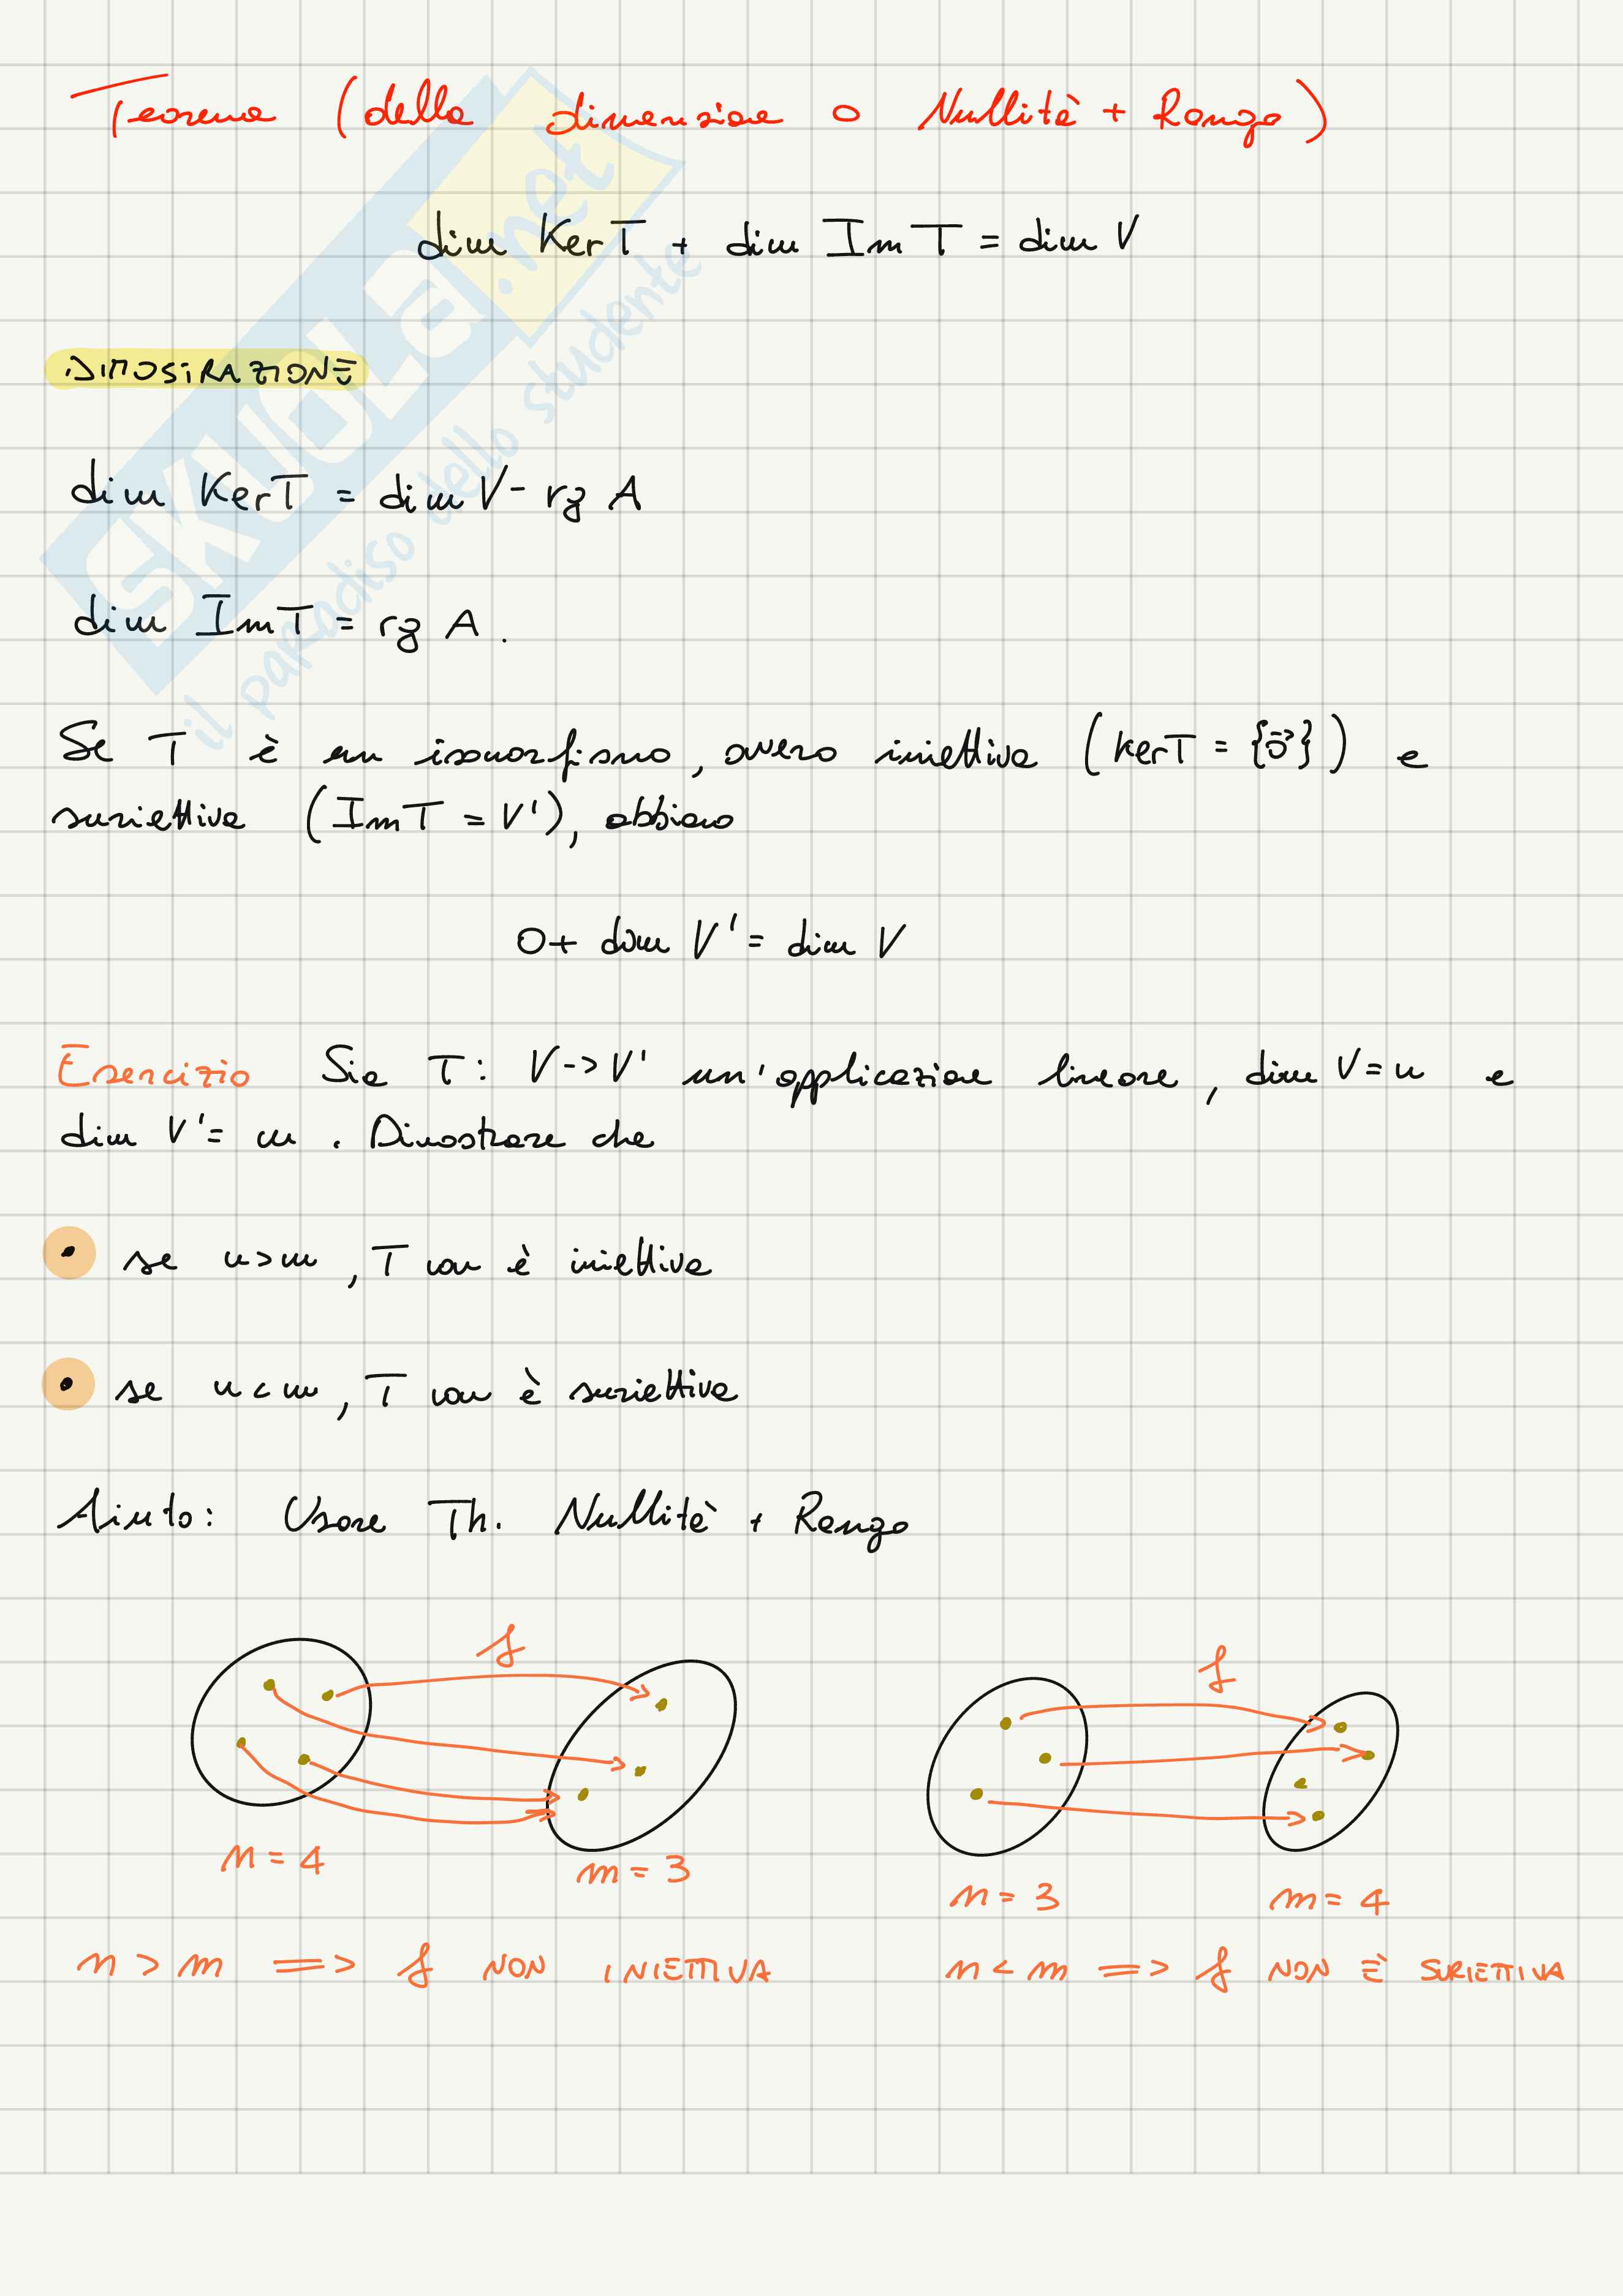 Teorema (della dimensione o Nullità + Rango)
dim Ker T + dim Im T = dim V
DIMOSTRAZIONE
dim Ker T = dim V - rg A
dim Im T = rg A.
Se T è un isomorfismo, ovvero iniettiva (ker T = {0⃗}) e
suriettiva (Im T = V'), abbiamo
0 + dim V' = dim V
Esercizio Sia T: V -> V' un'applicazione lineare, dim V = n e
dim V' = m. Dimostrare che
• se n > m, T non è iniettiva
• se n < m, T non è suriettiva
Aiuto: Usare Th. Nullità + Rango
f
f
n = 4
m = 3
n = 3
m = 4
n > m => f NON INIETTIVA
n < m => f NON È SURIETTIVA
SKUOLA.net
il paradiso dello studente